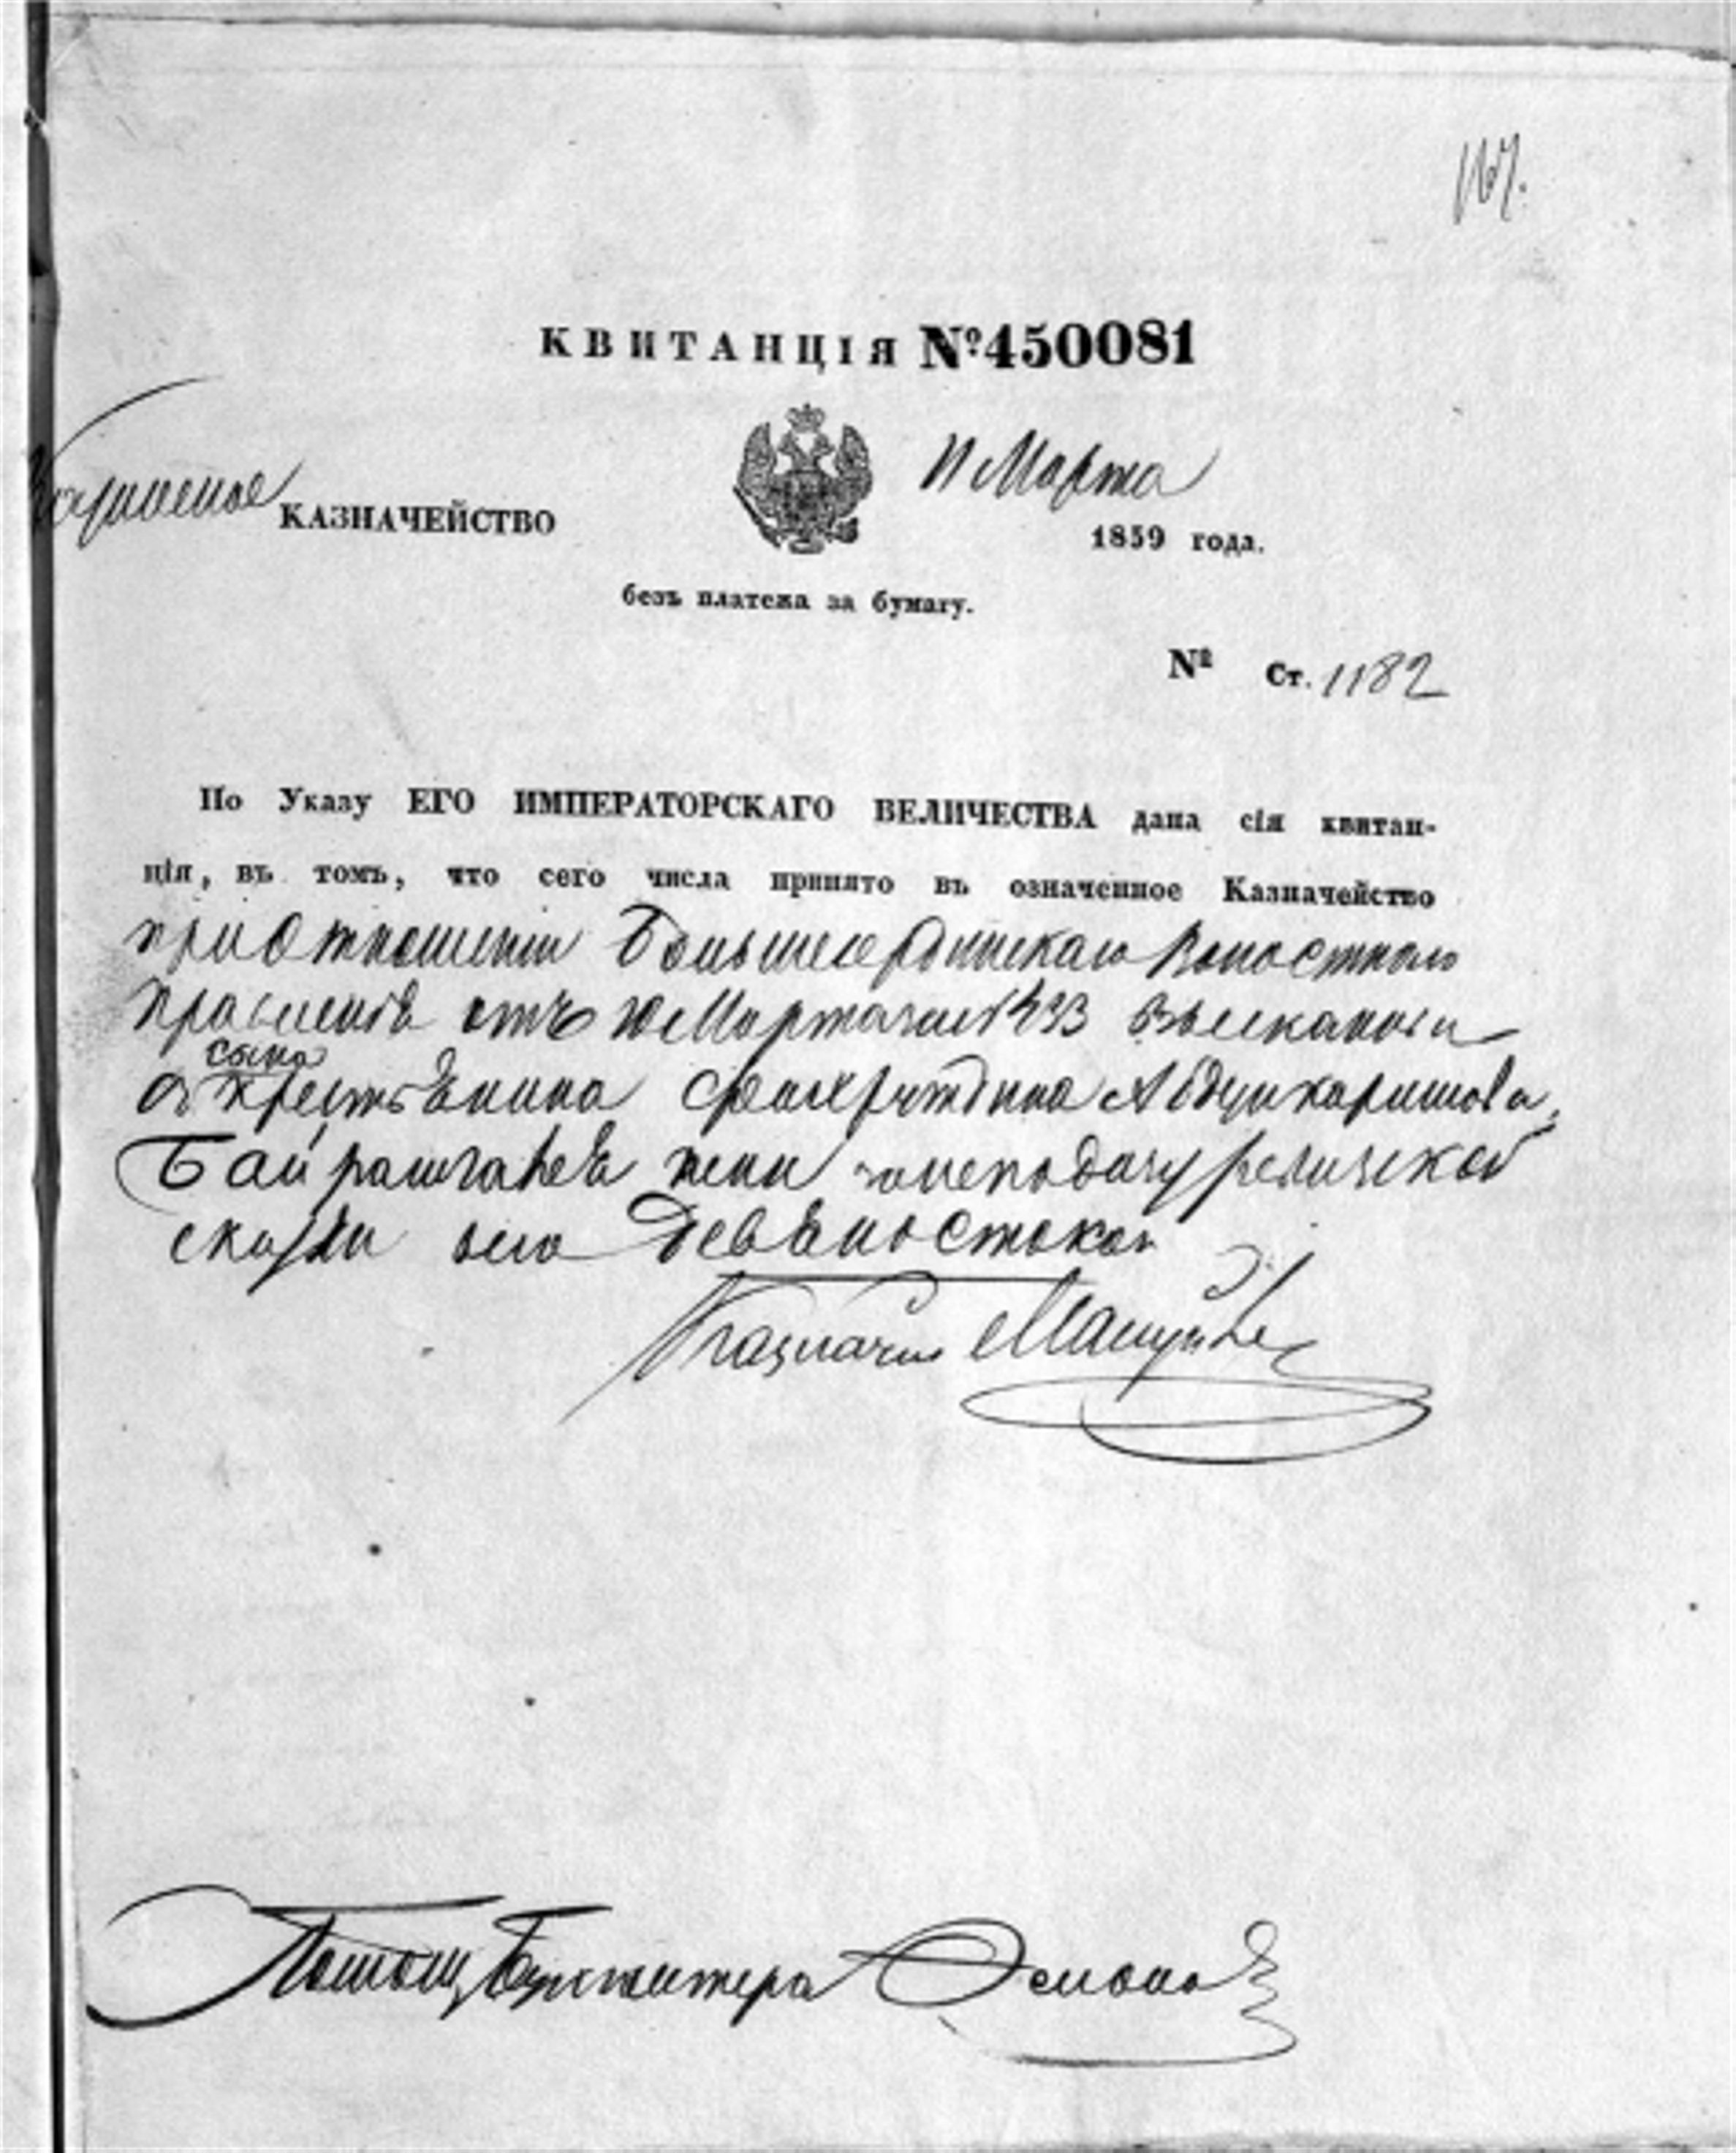 167.
КВИТАНЦІЯ №450081
КАЗНАЧЕЙСТВО
11 Марта
1859 года.
безъ платежа за бумагу.
№ Ст. 1182
По Указу ЕГО ИМПЕРАТОРСКАГО ВЕЛИЧЕСТВА дана сія квитан-
ція, въ томъ, что сего числа принято въ означенное Казначейство
при отношеніи Волостнаго
правленія отъ 10 Марта за №433 взысканныя
сына
съ крестьянина Абдулкаримова,
пени за неподачу ревизской
сказки всего Девяносто коп
Казначей
Помощ Бухгалтера